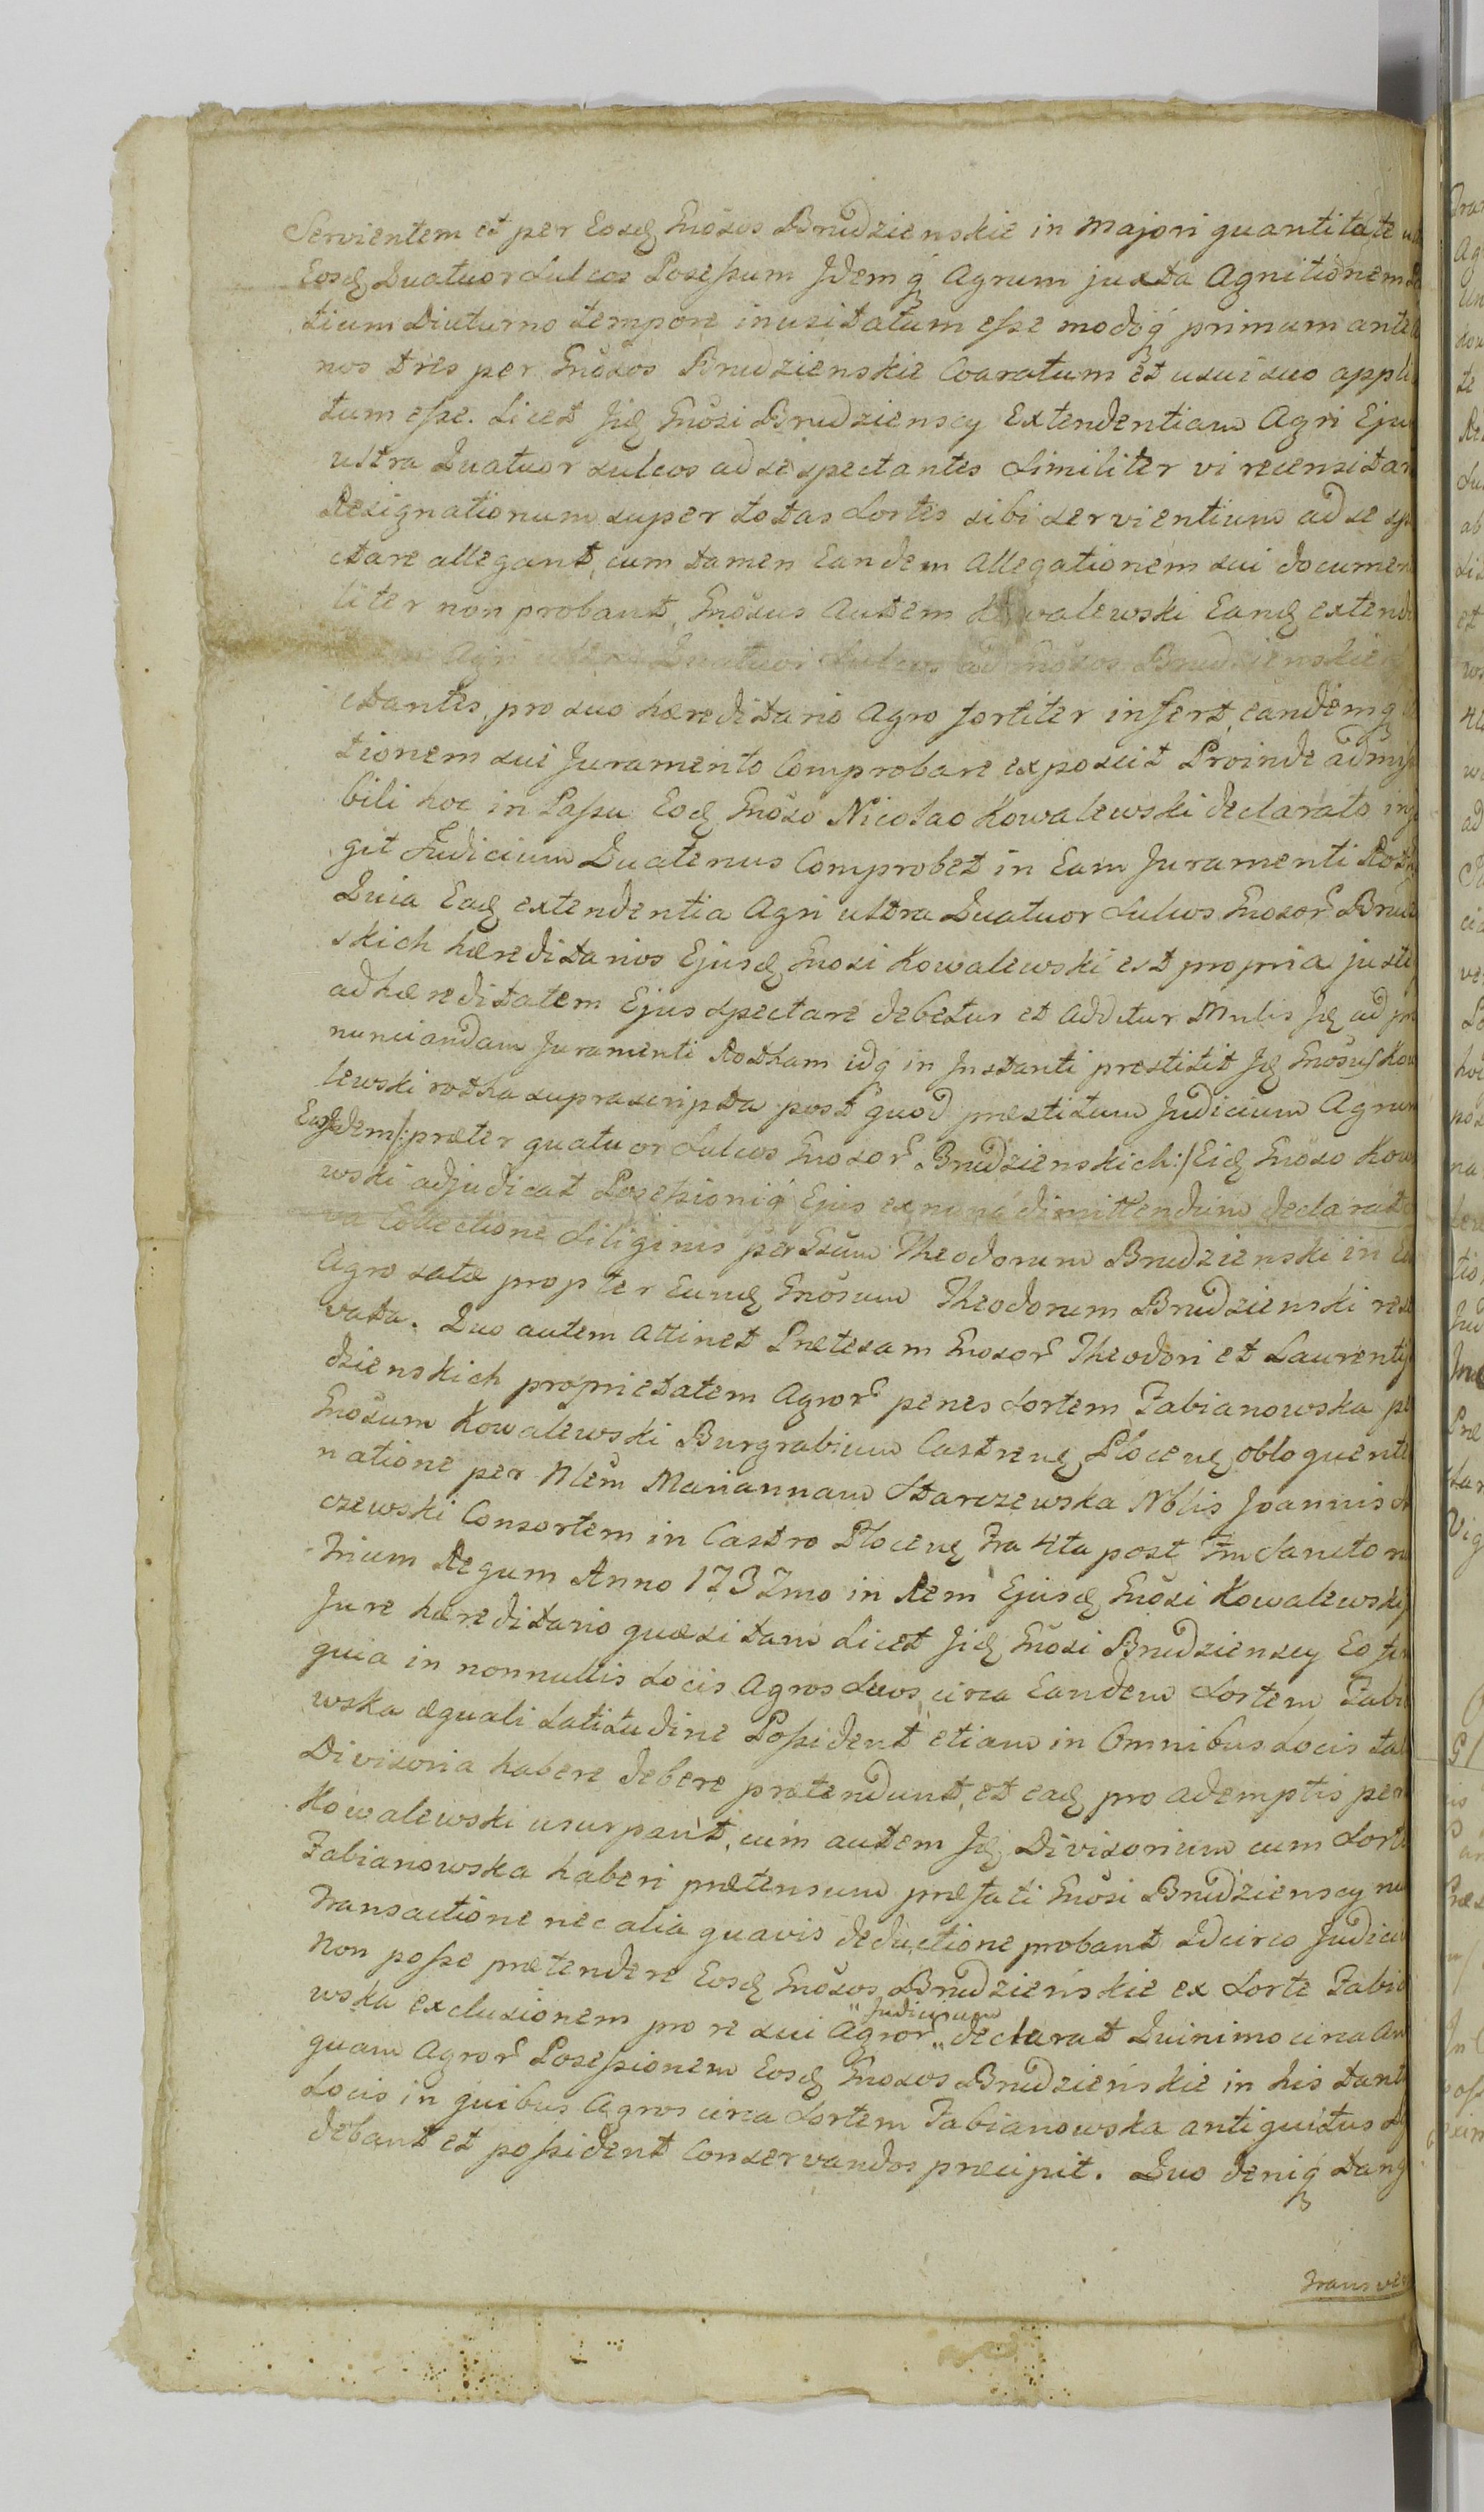 Servientem et per Eosd Gnosos Brudzienskie in Majori quantitate
Eosd Quatuor Sulcos Possessum Idemq Agrum juxta Agnitionem
tium Diuturno tempore inusitatum esse modoq primum ante
nos tres per Gnosos Brudzienskie Coaratum et usui suo appli
tum esse. Licet Jid Gnosi Brudzienscy Extendentiam Agri Eju
ultra Quatuor sulcos ad se spectantes Similiter vi recensitar
Resignationum super totas Sortes sibi servientium ad se sp
ctare allegant, cum tamen Eandem Allegationem sui documen
liter non probant, Gnosus Autem Kowalewski Eand extend
Agri ultra Quatuor Sulcos ad Gnosos Brudzienskie
ctantes, pro suo hæreditario Agro fortiter infert, eandemq
tionem sui Juramento Comprobare exposcit Proinde admis
bili hoc in Passu Eod Gnoso Nicolao Kowalewski declarato in
git Judicium Quatenus Comprobet in Eam Juramenti Roth
Quia Ead extendentia Agri ultra Quatuor Sulcos Gnosor Brud
skich hæreditarios Ejusd Gnosi Kowalewski est propria juste
ad hæreditatem Ejus spectare debetur et Additur Mnlis Jd ad pro
nunciandam Juramenti Rotham idq in Instanti prestitit Jd Gnosus Kow
lewski rotha suprascripta post quod præstitum Judicium Agrum
Eundem/: præter quatuor Sulcos Gnosor Brudzienskich:/ Eid Gnoso Kow
wski adjudicat Possessioniq Ejus ex nunc dimittendum declarat
va Collectione Siliginis per Gsum Theodorum Brudzienski in E
Agro satæ propter Eund Gnosum Theodorum Brudzienski rese
vata. Quo autem Attinet Prætesam Gnosor Theodori et Laurentij
dzienskich proprietatem Agror penes Sortem Fabianowska pe
Gnosum Kowalewski Burgrabium Castrens Plocens obloquente
natione per Nlem Mariannam Starczewska Nblis Joannis St
czewski Consortem in Castro Plocens Fra 4ta post Fm Sanctor
Trium Regum Anno 1732mo in Rem Ejusd Gnosi Kowalewski
Jure hæreditario quæsitam Licet Jid Gnosi Brudzienscy Eo
quia in nonnullis Locis Agros Suos, circa Eandem Sortem Fabi
wska æquali Latitudine Possident etiam in Omnibus Locis tal
Divisoria habere debere prætendunt, et ead pro ademptis per
Kowalewski usurpant, cum autem Jd Divisorium cum Sorte
Fabianowska haberi prætensum præfati Gnosi Brudzienscy ne
Transactione nec alia quavis deductione probant Idcirco Judici
Non posse prætendere Eosd Gnosos Brudzieńskie ex Sorte Fabia
wska exclusionem pro re sui Agror „ Judicium „ declarat Quinimo circa An
quam Agror Possessionem Eosd Gnosos Brudzieńskie in his tant
Locis in quibus Agros circa Sortem Fabianowska antiquitus
debant et possident Conservandos præcipit. Quo deniq tang
Transver